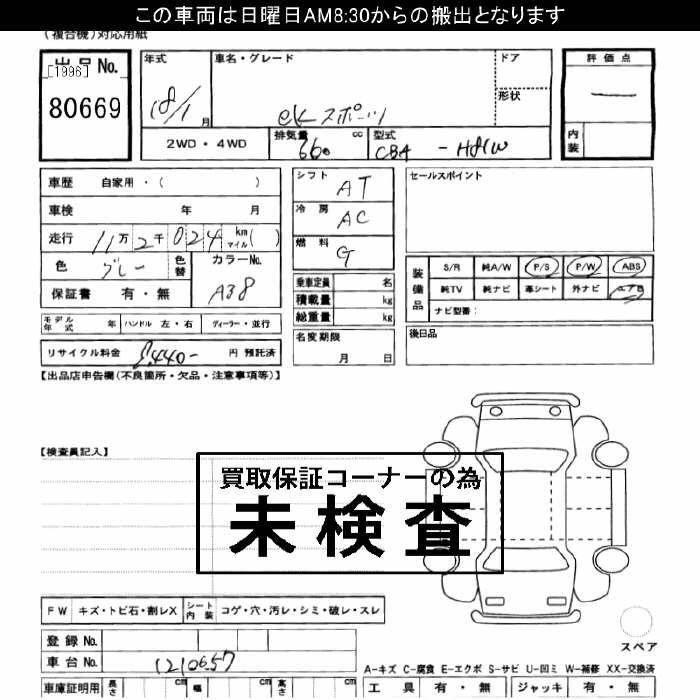 この車両は日曜日AM8:30からの搬出となります
(複合機)対応用紙
出品No.
[1996]
80669
年式
18/1 月
車名・グレード
ekスポーツ
ドア
形状
2WD・4WD
排気量 660 cc
型式 CBA - H81W
評価点
—
内装
車歴 自家用・( )
車検 年 月
走行 11万2千024 km マイル( )
色 グレー
色替
カラーNo.
A38
保証書 有・無
シフト AT
冷房 AC
燃料 G
乗車定員 名
積載量 kg
総重量 kg
セールスポイント
装備品
S/R 純A/W P/S P/W ABS
純TV 純ナビ 革シート 外ナビ
ナビ型番:
モデル年式 年
ハンドル 左・右
ディーラー・並行
名変期限
月 日
後日品
リサイクル料金 8,440- 円 預託済
【出品店申告欄(不良箇所・欠品・注意事項等)】
【検査員記入】
買取保証コーナーの為
未検査
FW キズ・トビ石・割レX
シート内装 コゲ・穴・汚レ・シミ・破レ・スレ
登録No.
車台No. 1210657
スペア
A-キズ C-腐食 E-エクボ S-サビ U-凹ミ W-補修 XX-交換済
車庫証明用 長さ cm 幅 cm 高さ cm
工具 有・無 ジャッキ 有・無